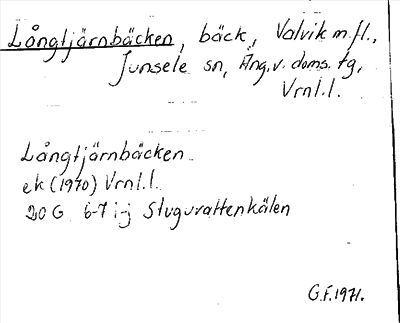 Långtjärnbäcken, bäck, Valvik m.fl.,
Junsele sn, Äng.v. doms. tg,
Vrnl.l.
Långtjärnbäcken
ek (1970) Vrnl.l.
20 G 6-7 i-j Stuguvattenkälen
G.F. 1971.